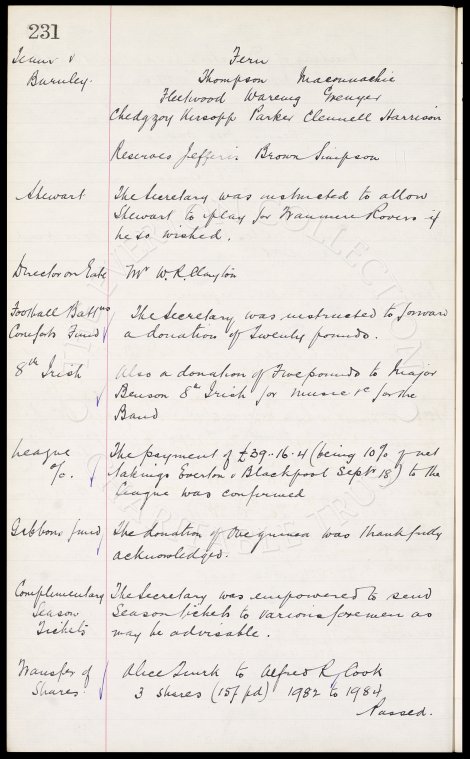 231
Team v Fern
Burnley. Thompson Maconnachie
Fleetwood Wareing Grenyer
Chedgzoy Kirsopp Parker Clennell Harrison
Reserves Jefferis Brown Simpson
Stewart The Secretary was instructed to allow
Stewart to play for Tranmere Rovers if
he so wished.
Director on Gate Mr W. R. Clayton
Football Battns The Secretary was instructed to forward
Comforts Fund a donation of Twenty pounds.
8th Irish Also a donation of Five pounds to Major
Benson 8th Irish for music &c for the
Band
League The payment of £39.16.4 (being 10% of net
%. takings Everton v Blackpool Sept 18) to the
League was confirmed
Gibbons fund The donation of One guinea was thankfully
acknowledged.
Complimentary The Secretary was empowered to send
Season Season tickets to various foremen as
Tickets may be advisable.
Transfer of Alice Quirk to Alfred R. Cook
Shares. 3 shares (15/ pd) 1982 to 1984
Passed.